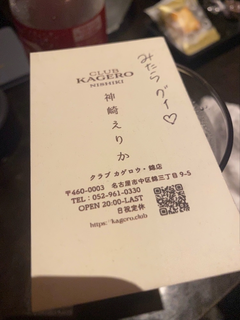 CLUB
KAGERO
NISHIKI
みたら
グイ♡
神崎えりか
クラブ カゲロウ・錦店
〒460-0003 名古屋市中区錦三丁目9-5
TEL：052-961-0330
OPEN 20:00-LAST
日祝定休
https://kagero.club